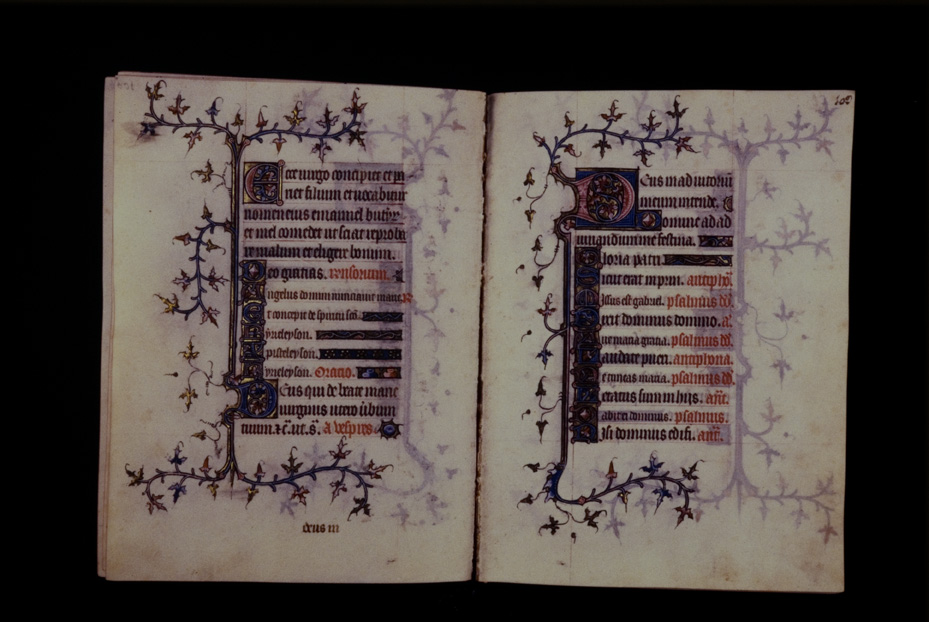 Ecce uirgo concipiet et pa
riet filium et uocabitur
nomen eius emanuel butyr
et mel comedet ut sciat reproba
re malum et eligere bonum.
Deo gratias. responsorium.
Angelus domini nunciauit marie
Et concepit de spiritu sco.
kyrieleyson.
xpisteleyson.
kyrieleyson. Oratio.
Deus qui de beate marie
uirginis utero uerbum
tuum. A vespres
deus in
102
Deus in adiutoriu
meum intende.
Domine ad ad
iuuandum me festina.
Gloria patri
Sicut erat in prin. antipho.
Missus est gabriel. psalmus dd.
Dixit dominus domino. a.
Aue maria gratia. psalmus dd.
Laudate pueri. antiphona.
Ne timeas maria. psalmus dd.
Letatus sum in hijs. ant.
Dabit ei dominus. psalmus.
Nisi dominus edifi. ant.